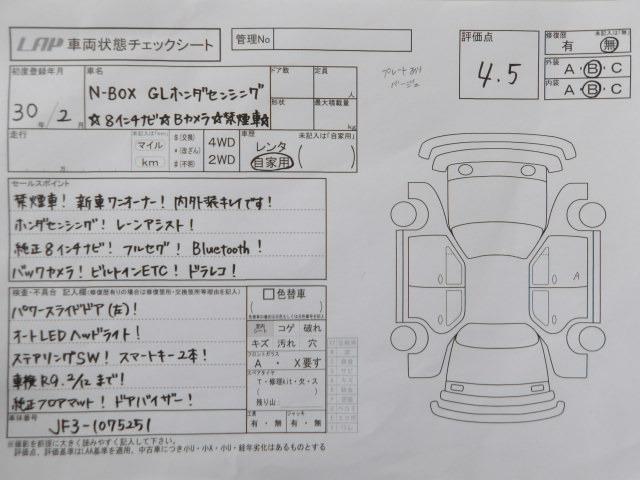 LAP 車両状態チェックシート
管理No
評価点
4.5
修復歴 未記入は「無」
有・無
外装 A・B・C
内装 A・B・C
初度登録年月
30年/2月
車名
N-BOX GLホンダセンシング
☆8インチナビ☆Bカメラ☆禁煙車☆
ドア数
定員
形状
最大積載量
kg
プレートあり
ベージュ
走行
万
未記入は「km」
マイル
km
$(交換)
*(改ざん)
#(不明)
4WD
2WD
車歴 未記入は「自家用」
レンタ
自家用
セールスポイント
禁煙車! 新車ワンオーナー! 内外装キレイです!
ホンダセンシング! レーンアシスト!
純正8インチナビ! フルセグ! Bluetooth!
バックカメラ! ビルトインETC! ドラレコ!
検査・不具合 記入欄(修復歴有りの場合は修復箇所・交換箇所等理由を記入)
パワースライドドア(左)!
オートLEDヘッドライト!
ステアリングSW! スマートキー2本!
車検R9.2/12まで!
純正フロアマット! ドアバイザー!
色替車
コゲ 破れ
キズ 汚れ 穴
フロントガラス
A ・ X要す
スペアタイヤ
T・修理kit・欠・ス
残り山:
工具
有・無
ジャッキ
有・無
車体番号
JF3-1075251
A
※撮影を前提に大きく読みやすく記入して下さい。
評価点、評価基準はLAA基準を適用、中古車につき小U・小X・小U・経年劣化はあるものとする